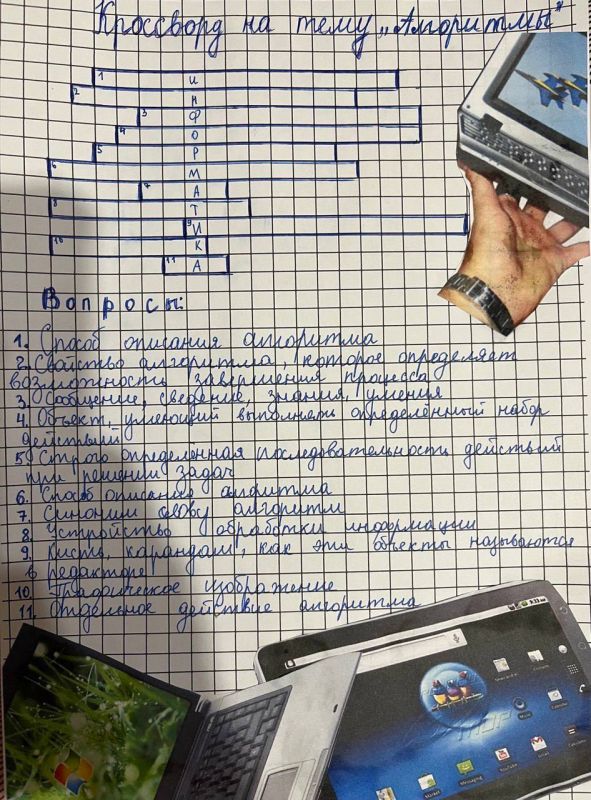 Кроссворд на тему „Алгоритмы"
1 и
2 н
3 ф
4 о
5 р
6 м
7 а
8 т
9 и
10 к
11 а
Вопросы:
1. Способ описания алгоритма
2. Свойство алгоритма, которое определяет
возможность завершения процесса
3. Сообщение, сведение, знания, умения
4. Объект, умеющий выполнять определённый набор
действий
5. Строго определённая последовательность действий
при решении задач
6. Способ описания алгоритма
7. Синоним слову алгоритм
8. Устройство обработки информации
9. Кисть, карандаш, как эти объекты называются
в редакторе
10. Графическое изображение
11. Отдельное действие алгоритма
ViewSonic
Market
Messaging
YouTube
Gmail